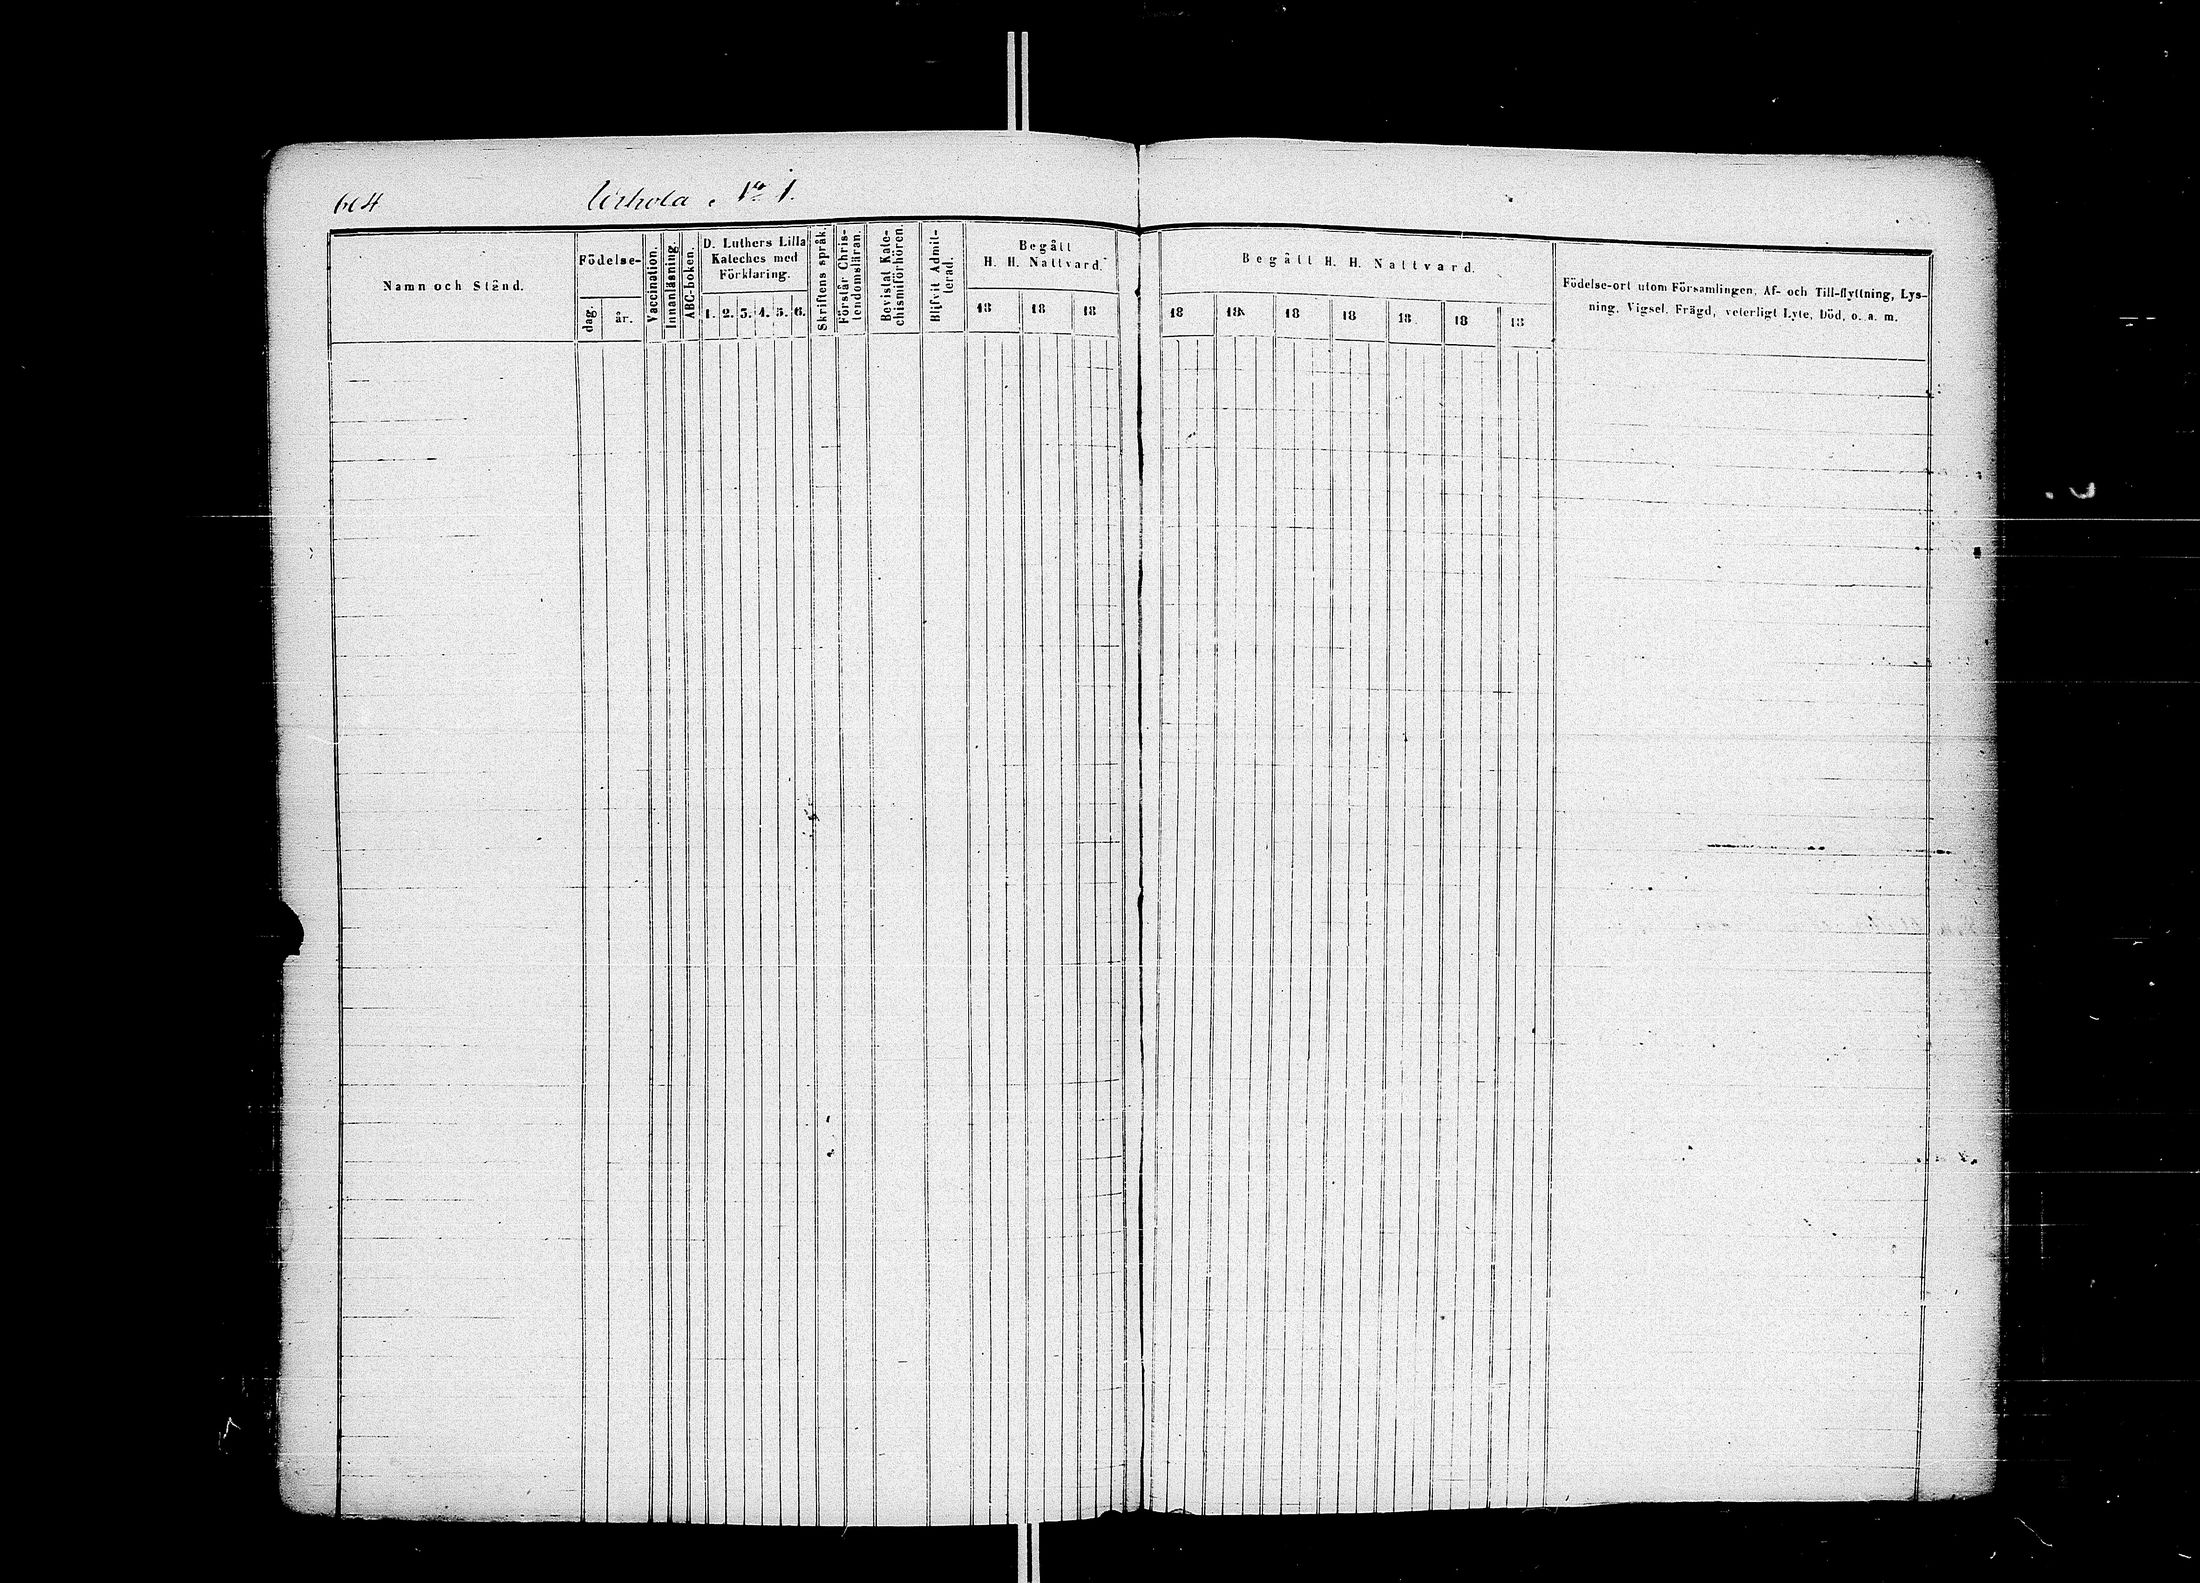 604 Urhola. No 1.
Namn och Stånd.
Födelse-
dag.
år.
Vaccination.
Innanläsning.
ABC-boken.
D. Luthers Lilla
Kateches med
Förklaring.
1. 2. 3. 4. 5. 6.
Skriftens språk.
Förstår Chris-
tendomsläran.
Bevistat Kate-
chismiförhören.
Blifvit Admit-
terad.
Begått
H. H. Nattvard.
18 18 18
Begått H. H. Nattvard.
18 18 18 18 18 18 18
Födelse-ort utom Församlingen, Af- och Till-flyttning, Lys-
ning, Vigsel, Frägd, veterligt Lyte, Död, o. a. m.